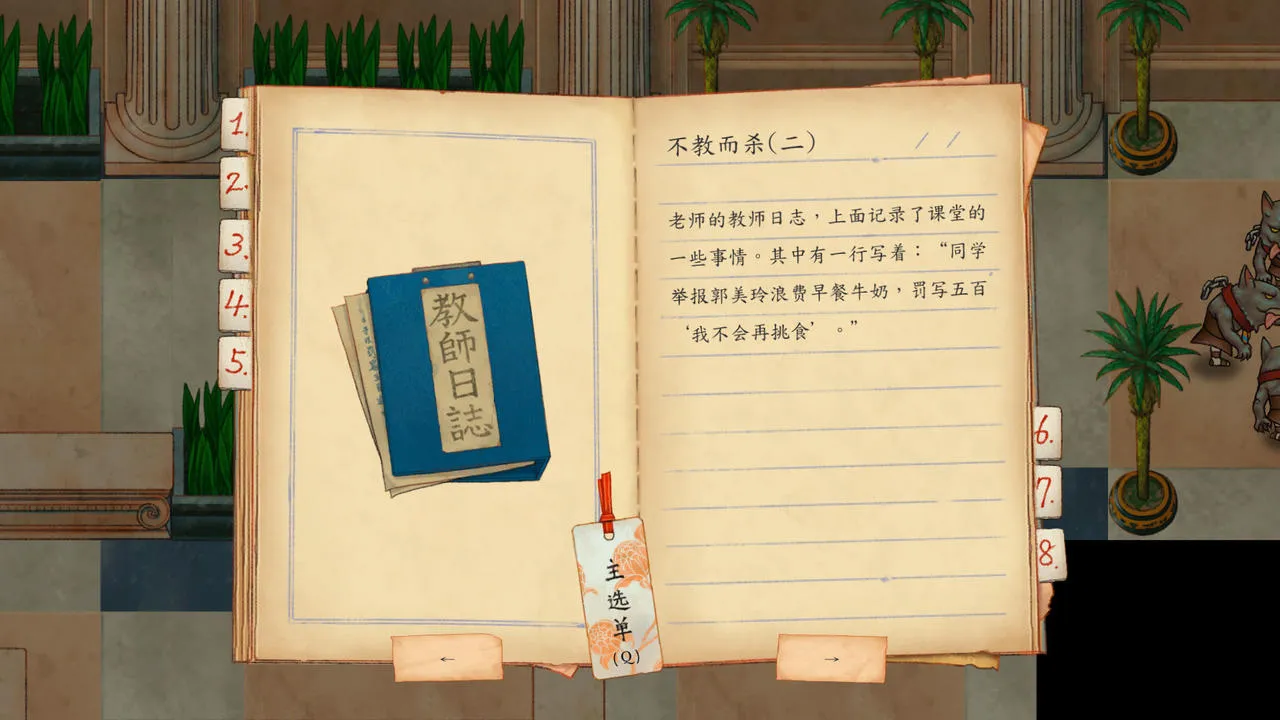 1.
2.
3.
4.
5.
教師日誌
不教而杀(二)
老师的教师日志，上面记录了课堂的
一些事情。其中有一行写着：“同学
举报郭美玲浪费早餐牛奶，罚写五百
‘我不会再挑食’。”
6.
7.
8.
主选单
(Q)
←
→